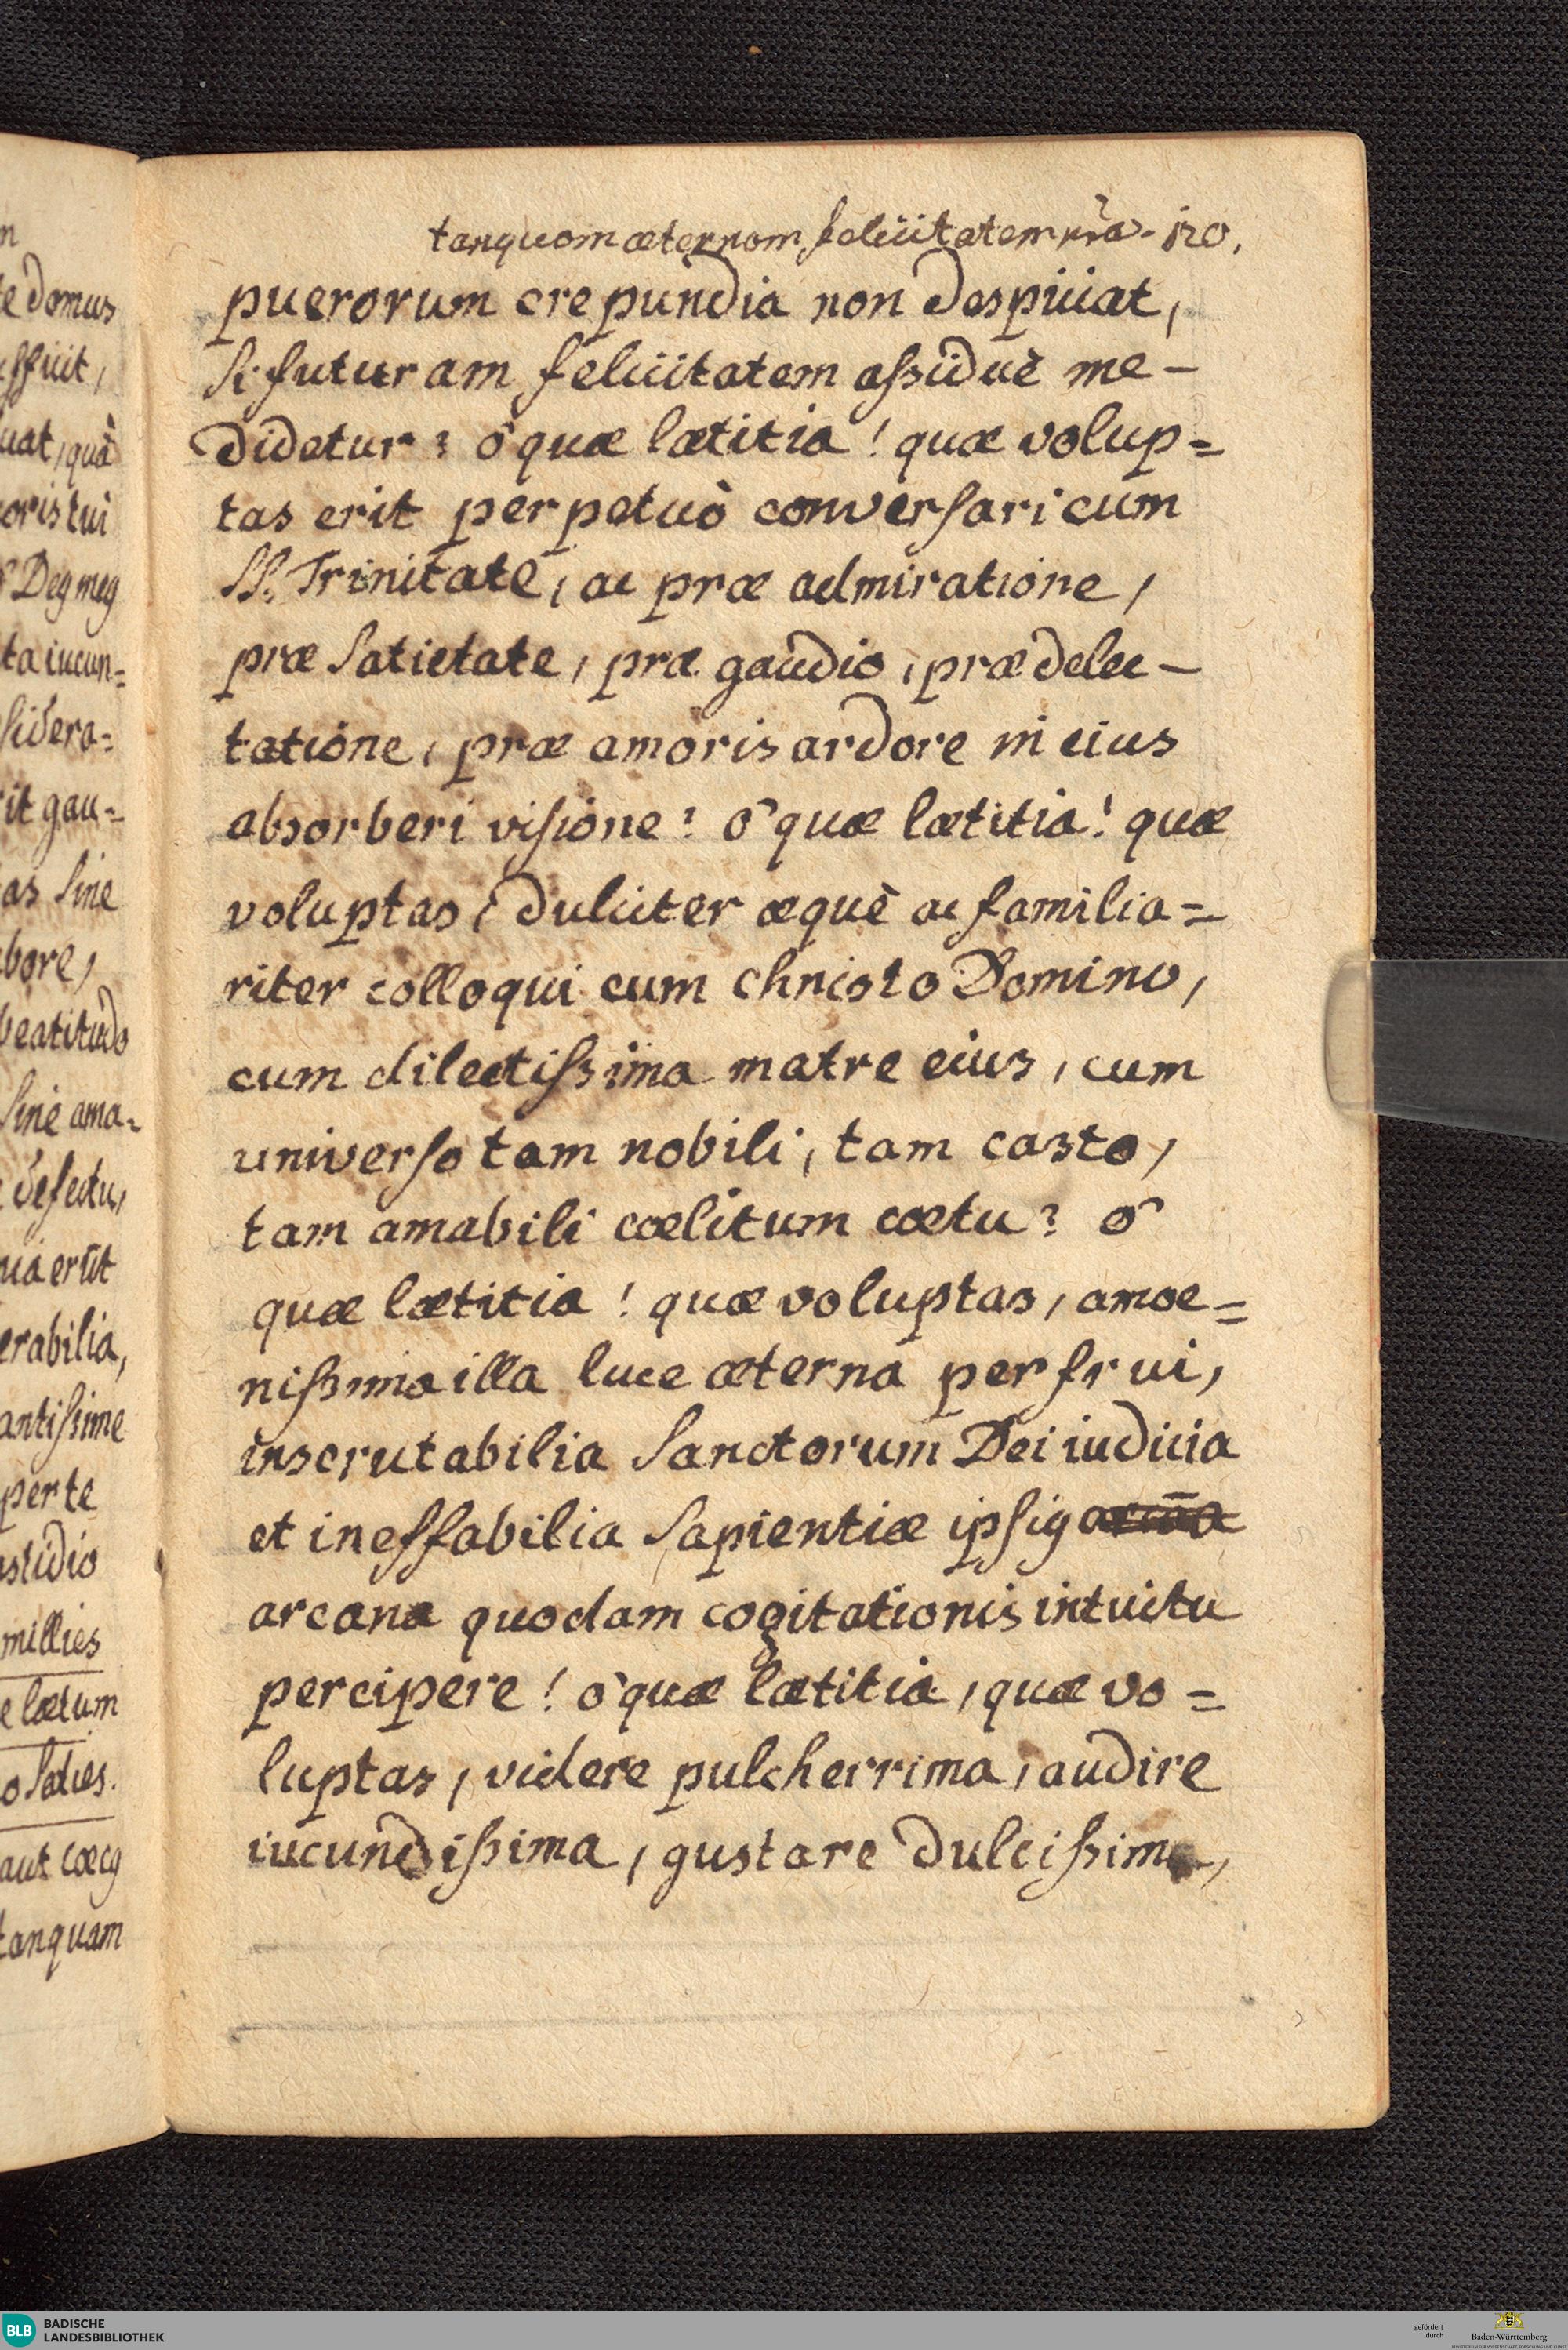 tanquam æternam felicitatem nr̃a. 120.
puerorum crepundia non despiciat,
si futuram felicitatem assiduè me-
didetur? ô quæ lætitia! quæ volup=
tas erit perpetuò conversari cum
SS. Trinitate, ac præ admiratione,
præ satietate, præ gaudio, præ delec-
tatione, præ amoris ardore in eius
absorberi visione? ô quæ lætitia! quæ
voluptas, dulciter æquè ac familia=
riter colloqui cum christo Domino,
cum dilectissima matre eius, cum
universo tam nobili, tam casto,
tam amabili cœlitum cœtu? ô
quæ lætitia! quæ voluptas, amoe=
nissima illa luce æterna perfrui,
inscrutabilia Sanctorum Dei iudicia
et ineffabilia Sapientiæ ipsig
arcana quodam cogitationis intuitu
percipere! ô quæ lætitia, quæ vo=
luptas, videre pulcherrima, audire
iucundissima, gustare dulcissima,
e domus
ssicit,
uat, quà
oris tui
Deg meg
ta iucun=
sidera=
it gau=
as sine
bore,
beatitudo
sine ama=
defectu,
ia erũt
erabilia,
antissime
per te
stidio
millies
e lætum
o saties.
aut cœcg
tanquam
BLB BADISCHE
LANDESBIBLIOTHEK
gefördert
durch
Baden-Württemberg